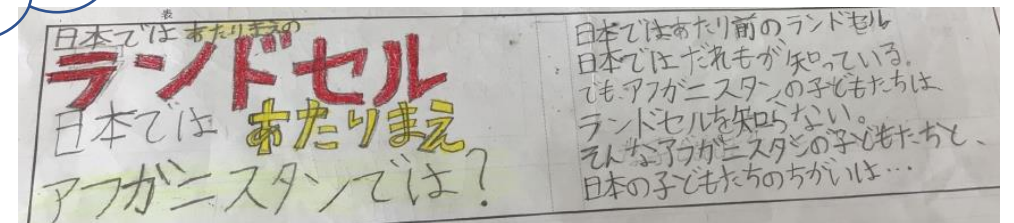 表
日本では あたりまえの
ランドセル
日本では あたりまえ
アフガニスタンでは?
日本ではあたり前のランドセル
日本ではだれもが知っている。
でも、アフガニスタンの子どもたちは
ランドセルを知らない。
そんなアフガニスタンの子どもたちと、
日本の子どもたちのちがいは…